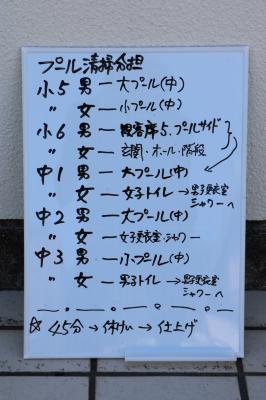 プール清掃分担
小5 男 ー 大プール(中)
〃 女 ー 小プール(中)
小6 男 ー 観客席、プールサイド
〃 女 ー 玄関・ホール・階段
中1 男 ー 大プール(中)
〃 女 ー 女子トイレ → 男子更衣室 シャワーへ
中2 男 ー 大プール(中)
〃 女 ー 女子更衣室・シャワー
中3 男 ー 小プール(中)
〃 女 ー 男子トイレ → 男子更衣室 シャワーへ
☆ 45分 → 休けい → 仕上げ